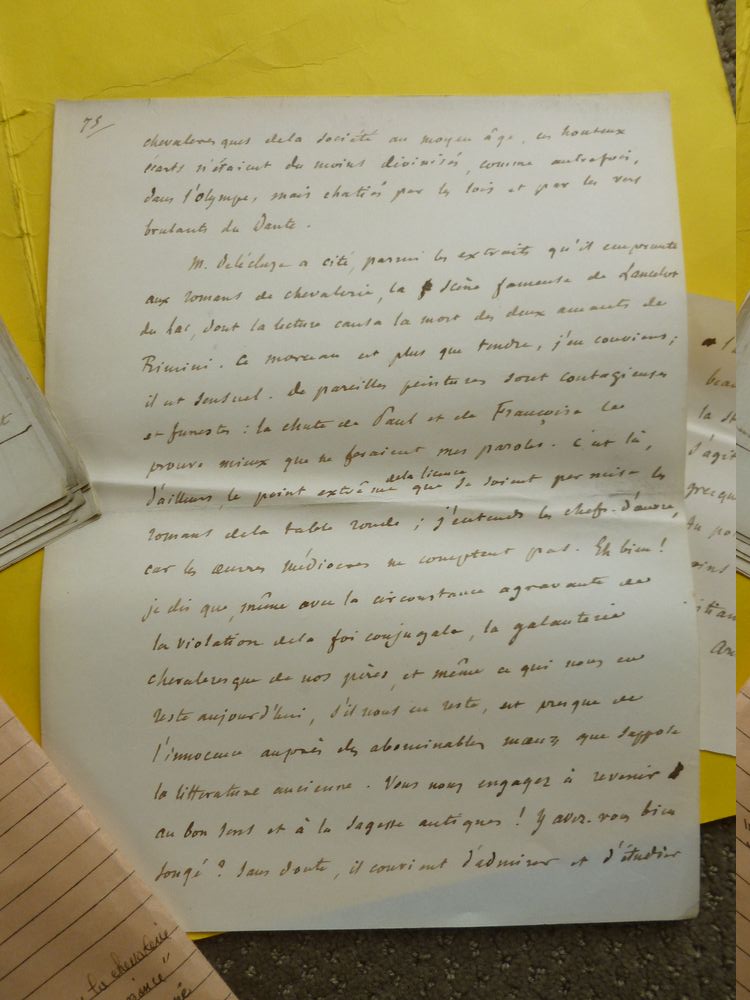 75
chevaleresques dela société au moyen âge, ces honteux
écarts n'étaient du moins divinisés, comme autrefois,
dans l'olympe, mais chatiés par les lois et par les vers
brulants du Dante.
M. Delécluze a cité, parmi les extraits qu'il emprunte
aux romans de chevalerie, la scène fameuse de Lancelot
du lac, dont la lecture causa la mort des deux amants de
Rimini. Ce morceau est plus que tendre, j'en conviens;
il est sensuel. De pareilles peintures sont contagieuses
et funestes : la chute de Paul et de Françoise le
prouve mieux que ne feraient mes paroles. C'est là,
d'ailleurs, le point extrême dela licence que se soient permise les
romans dela table ronde ; j'entends les chefs-d'œuvre,
car les œuvres médiocres ne comptent pas. Eh bien!
je dis que, même avec la circonstance agravante de
la violation dela foi conjugale, la galanterie
chevaleresque de nos pères, et même ce qui nous en
reste aujourd'hui, s'il nous en reste, est presque de
l'innocence auprès des abominables mœurs que suppose
la littérature ancienne. Vous nous engagez à revenir
au bon sens et à la sagesse antiques ! Y avez-vous bien
songé ? Sans doute, il convient d'admirer et d'étudier
la
s'agit
la chevalerie